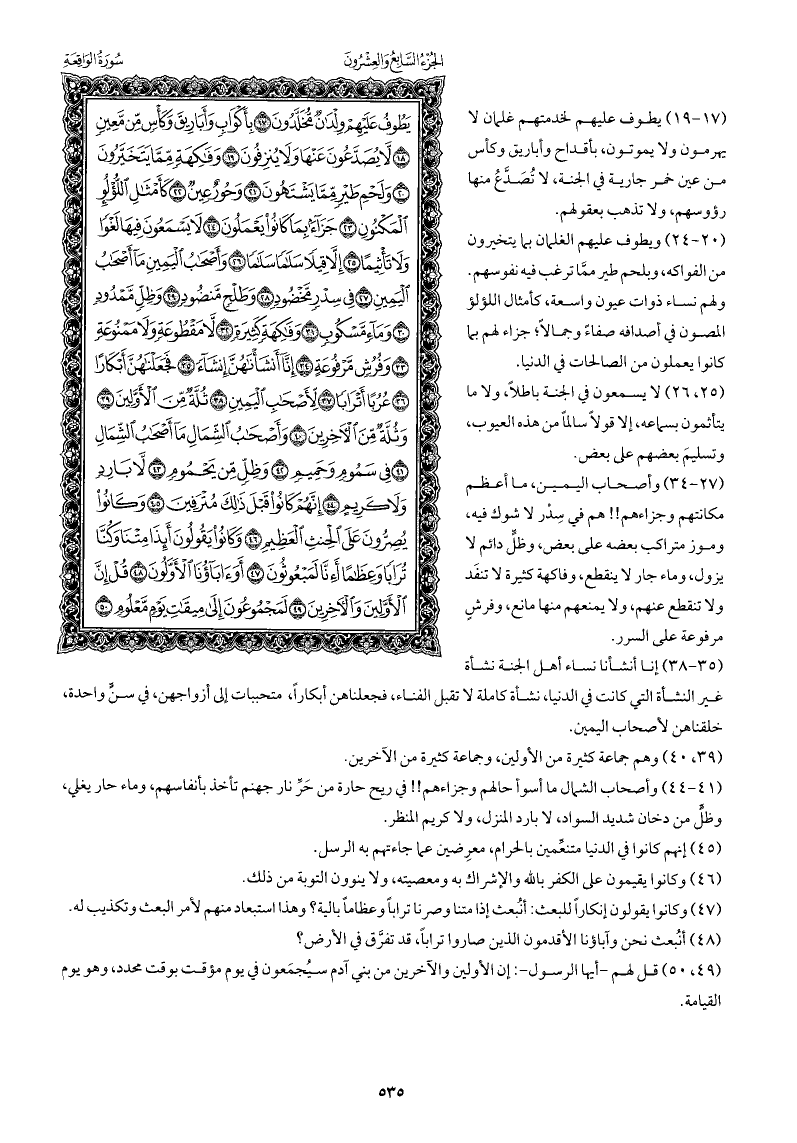 الجُزءُ السَّابِعُ وَالعِشْرُونَ
سُورَةُ الوَاقِعَةِ
يَطُوفُ عَلَيْهِمْ وِلْدَٰنٌ مُّخَلَّدُونَ ١٧ بِأَكْوَابٍ وَأَبَارِيقَ وَكَأْسٍ مِّن مَّعِينٍ
١٨ لَّا يُصَدَّعُونَ عَنْهَا وَلَا يُنزِفُونَ ١٩ وَفَٰكِهَةٍ مِّمَّا يَتَخَيَّرُونَ
٢٠ وَلَحْمِ طَيْرٍ مِّمَّا يَشْتَهُونَ ٢١ وَحُورٌ عِينٌ ٢٢ كَأَمْثَٰلِ اللُّؤْلُؤِ
الْمَكْنُونِ ٢٣ جَزَآءً بِمَا كَانُوا۟ يَعْمَلُونَ ٢٤ لَا يَسْمَعُونَ فِيهَا لَغْوًا
وَلَا تَأْثِيمًا ٢٥ إِلَّا قِيلًا سَلَٰمًا سَلَٰمًا ٢٦ وَأَصْحَٰبُ الْيَمِينِ مَآ أَصْحَٰبُ
الْيَمِينِ ٢٧ فِى سِدْرٍ مَّخْضُودٍ ٢٨ وَطَلْحٍ مَّنضُودٍ ٢٩ وَظِلٍّ مَّمْدُودٍ
٣٠ وَمَآءٍ مَّسْكُوبٍ ٣١ وَفَٰكِهَةٍ كَثِيرَةٍ ٣٢ لَّا مَقْطُوعَةٍ وَلَا مَمْنُوعَةٍ
٣٣ وَفُرُشٍ مَّرْفُوعَةٍ ٣٤ إِنَّآ أَنشَأْنَٰهُنَّ إِنشَآءً ٣٥ فَجَعَلْنَٰهُنَّ أَبْكَارًا
٣٦ عُرُبًا أَتْرَابًا ٣٧ لِّأَصْحَٰبِ الْيَمِينِ ٣٨ ثُلَّةٌ مِّنَ الْأَوَّلِينَ ٣٩
وَثُلَّةٌ مِّنَ الْآخِرِينَ ٤٠ وَأَصْحَٰبُ الشِّمَالِ مَآ أَصْحَٰبُ الشِّمَالِ
٤١ فِى سَمُومٍ وَحَمِيمٍ ٤٢ وَظِلٍّ مِّن يَحْمُومٍ ٤٣ لَّا بَارِدٍ
وَلَا كَرِيمٍ ٤٤ إِنَّهُمْ كَانُوا۟ قَبْلَ ذَٰلِكَ مُتْرَفِينَ ٤٥ وَكَانُوا۟
يُصِرُّونَ عَلَى الْحِنثِ الْعَظِيمِ ٤٦ وَكَانُوا۟ يَقُولُونَ أَئِذَا مِتْنَا وَكُنَّا
تُرَابًا وَعِظَٰمًا أَءِنَّا لَمَبْعُوثُونَ ٤٧ أَوَءَابَآؤُنَا الْأَوَّلُونَ ٤٨ قُلْ إِنَّ
الْأَوَّلِينَ وَالْآخِرِينَ ٤٩ لَمَجْمُوعُونَ إِلَىٰ مِيقَٰتِ يَوْمٍ مَّعْلُومٍ ٥٠
(١٧-١٩) يطوف عليهم لخدمتهم غلمان لا
يهرمون ولا يموتون، بأقداح وأباريق وكأس
من عين خمر جارية في الجنة، لا تُصَدَّعُ منها
رؤوسهم، ولا تذهب بعقولهم.
(٢٠-٢٤) ويطوف عليهم الغلمان بما يتخيرون
من الفواكه، وبلحم طير ممَّا ترغب فيه نفوسهم.
ولهم نساء ذوات عيون واسعة، كأمثال اللؤلؤ
المصون في أصدافه صفاءً وجمالاً؛ جزاء لهم بما
كانوا يعملون من الصالحات في الدنيا.
(٢٥، ٢٦) لا يسمعون في الجنة باطلاً، ولا ما
يتأثمون بسماعه، إلا قولاً سالماً من هذه العيوب،
وتسليمَ بعضهم على بعض.
(٢٧-٣٤) وأصحاب اليمين، ما أعظم
مكانتهم وجزاءهم!! هم في سِدْر لا شوك فيه،
وموز متراكب بعضه على بعض، وظلٍّ دائم لا
يزول، وماء جار لا ينقطع، وفاكهة كثيرة لا تنفَد
ولا تنقطع عنهم، ولا يمنعهم منها مانع، وفرشٍ
مرفوعة على السرر.
(٣٥-٣٨) إنا أنشأنا نساء أهل الجنة نشأة
غير النشأة التي كانت في الدنيا، نشأة كاملة لا تقبل الفناء، فجعلناهن أبكاراً، متحببات إلى أزواجهن، في سنٍّ واحدة،
خلقناهن لأصحاب اليمين.
(٣٩، ٤٠) وهم جماعة كثيرة من الأولين، وجماعة كثيرة من الآخرين.
(٤١-٤٤) وأصحاب الشمال ما أسوأ حالهم وجزاءهم!! في ريح حارة من حَرِّ نار جهنم تأخذ بأنفاسهم، وماء حار يغلي،
وظلٍّ من دخان شديد السواد، لا بارد المنزل، ولا كريم المنظر.
(٤٥) إنهم كانوا في الدنيا متنعِّمين بالحرام، معرِضين عما جاءتهم به الرسل.
(٤٦) وكانوا يقيمون على الكفر بالله والإشراك به ومعصيته، ولا ينوون التوبة من ذلك.
(٤٧) وكانوا يقولون إنكاراً للبعث: أنُبعث إذا متنا وصرنا تراباً وعظاماً بالية؟ وهذا استبعاد منهم لأمر البعث وتكذيب له.
(٤٨) أنُبعث نحن وآباؤنا الأقدمون الذين صاروا تراباً، قد تفرَّق في الأرض؟
(٤٩، ٥٠) قل لهم -أيها الرسول-: إن الأولين والآخرين من بني آدم سيُجمَعون في يوم مؤقت بوقت محدد، وهو يوم
القيامة.
٥٣٥